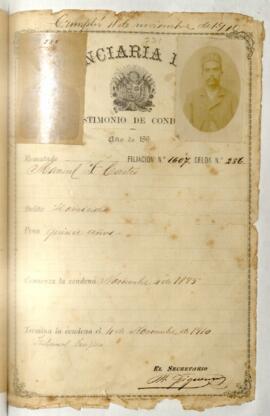 Cumplió 4 de noviembre de 1910
NCIARIA
STIMONIO DE COND
Año de 189
Rematado
FILIACIÓN N.° 1607. CELDA N.° 286
Manuel S.
Delito Homicidio
Pena quince años
Comienza la condena Noviembre 4 de 1895
Termina la condena el 4 de Noviembre de 1910
Tribunal
EL SECRETARIO